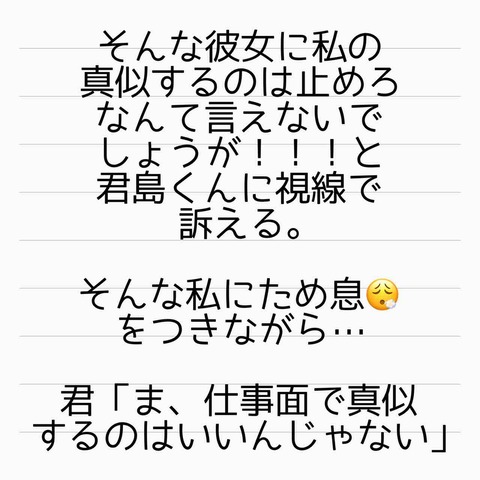 そんな彼女に私の
真似するのは止めろ
なんて言えないで
しょうが！！！と
君島くんに視線で
訴える。
そんな私にため息😮‍💨
をつきながら…
君「ま、仕事面で真似
するのはいいんじゃない」